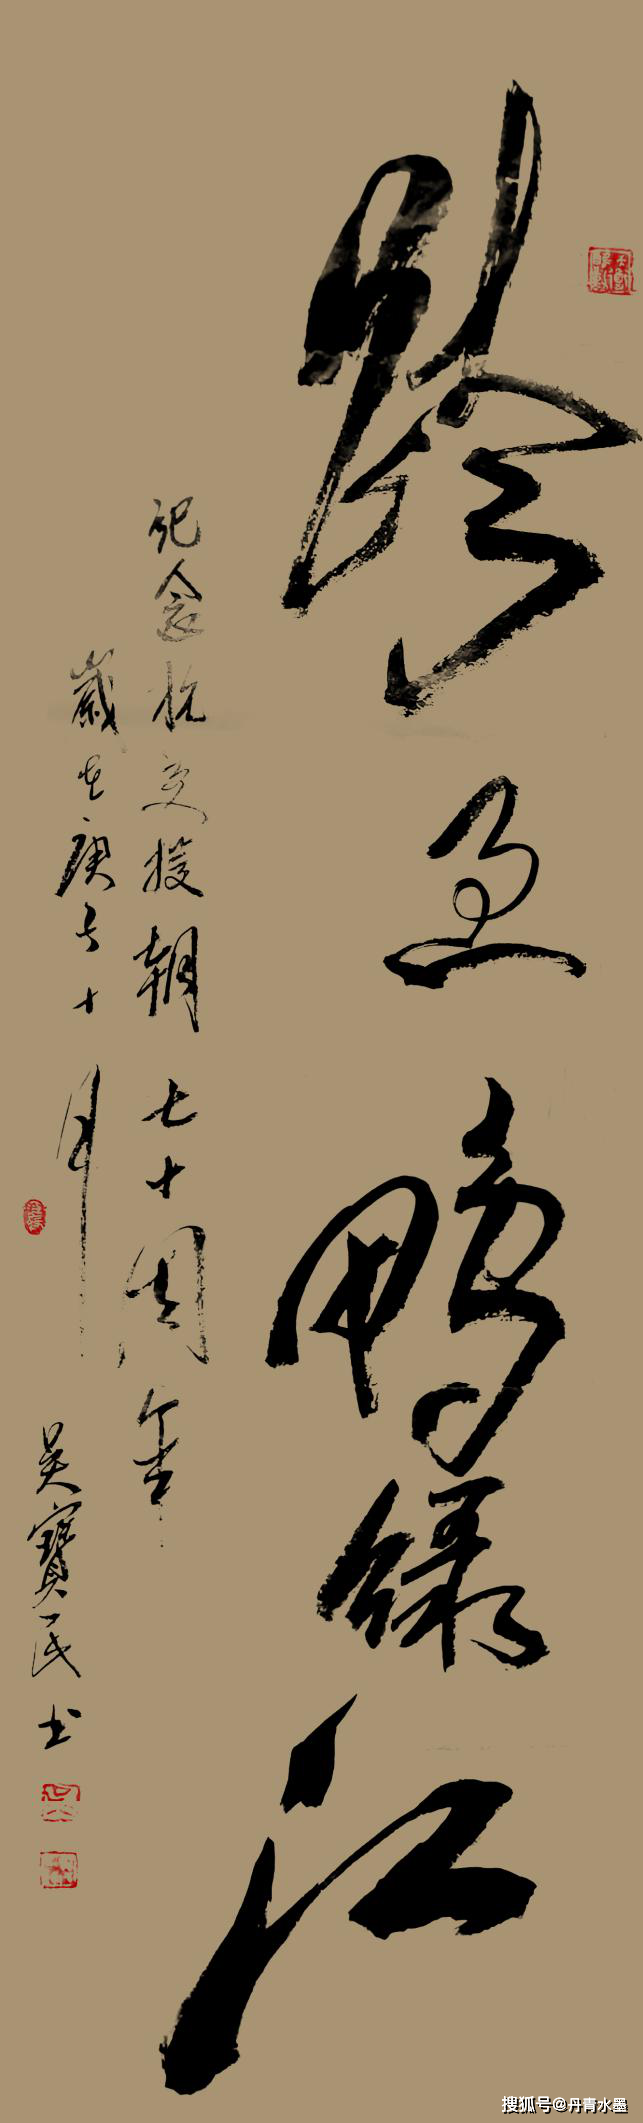 跨過鴨綠江
紀念抗美援朝七十周年
歲在庚子十月
吴寶民书
搜狐号@丹青水墨